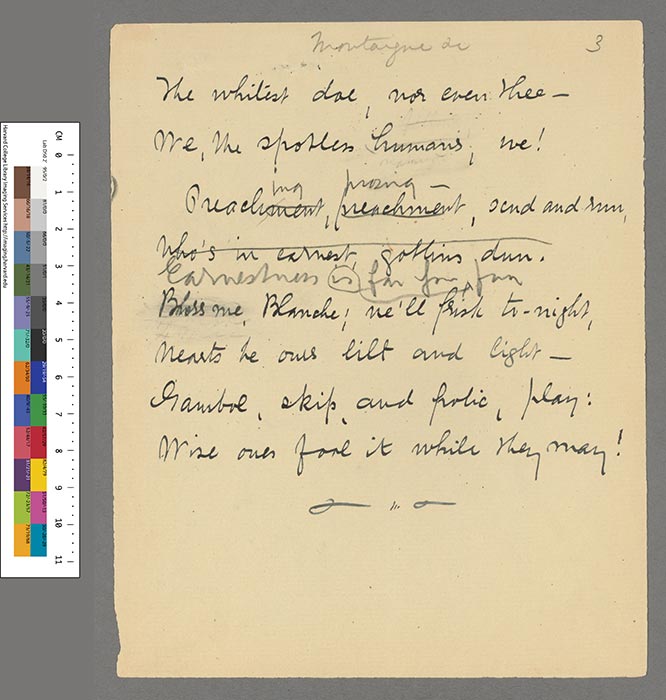 Montaigne &c
3
The whitest doe, nor even thee—
We, the spotless humans, we!
ing prosing—
Preachment, preachment, send and run,
Who's in earnest, goblins dun.
Earnestness is far from fun
Bless me, Blanche; we'll frisk to-night,
Hearts be ours lilt and light—
Gambol, skip, and frolic, play:
Wise ones fool it while they may!
CM 0 1 2 3 4 5 6 7 8 9 10 11
Harvard College Library Imaging Services http://imaging.harvard.edu